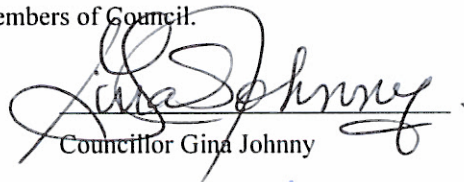 embers of Council.
Gina Johnny
Councillor Gina Johnny